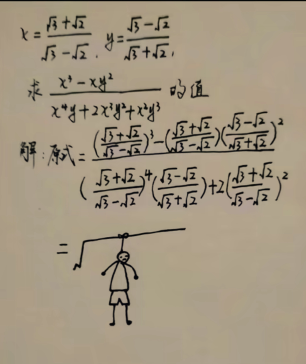 x = (√3+√2)/(√3-√2), y = (√3-√2)/(√3+√2),
求 (x³ - xy²)/(x⁴y + 2x³y² + x²y³) 的值
解: 原式 = (((√3+√2)/(√3-√2))³ - ((√3+√2)/(√3-√2))((√3-√2)/(√3+√2))²)/(((√3+√2)/(√3-√2))⁴((√3-√2)/(√3+√2)) + 2((√3+√2)/(√3-√2))²
=